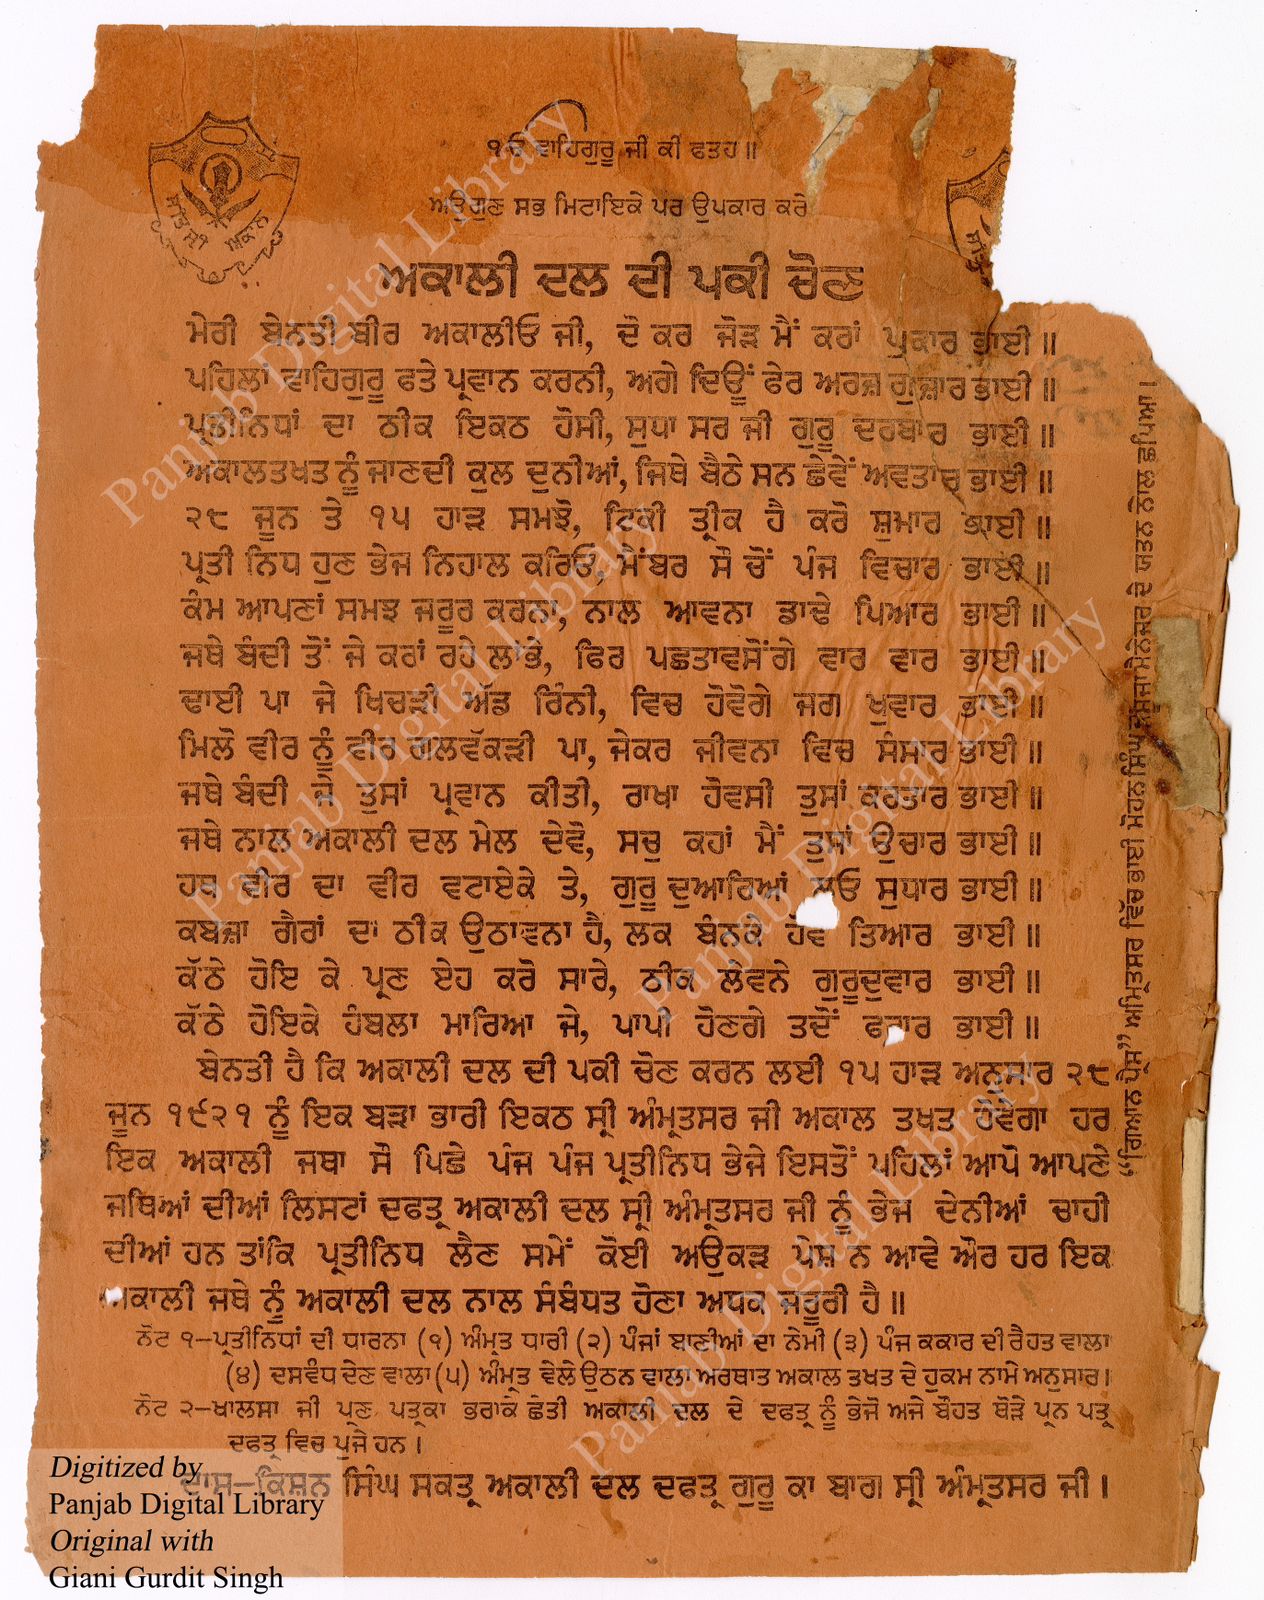 ੧ਓ ਵਾਹਿਗੁਰੂ ਜੀ ਕੀ ਫਤਹ॥
ਅਉਗੁਣ ਸਭ ਮਿਟਾਇਕੇ ਪਰ ਉਪਕਾਰ ਕਰੇ
ਸ੍ਰੀ ਅਕਾਲ
ਅਕਾਲੀ ਦਲ ਦੀ ਪਕੀ ਚੋਣ
ਮੇਰੀ ਬੇਨਤੀ ਬੀਰ ਅਕਾਲੀਓ ਜੀ, ਦੋ ਕਰ ਜੋੜ ਮੈਂ ਕਰਾਂ ਪੁਕਾਰ ਭਾਈ॥
ਪਹਿਲਾਂ ਵਾਹਿਗੁਰੂ ਫਤੇ ਪ੍ਰਵਾਨ ਕਰਨੀ, ਅਗੇ ਦਿਊਂ ਫੇਰ ਅਰਜ਼ ਗੁਜ਼ਾਰ ਭਾਈ॥
ਪ੍ਰਤੀਨਿਧਾਂ ਦਾ ਠੀਕ ਇਕਠ ਹੋਸੀ, ਸੁਧਾ ਸਰ ਜੀ ਗੁਰੂ ਦਰਬਾਰ ਭਾਈ॥
ਅਕਾਲਤਖਤ ਨੂੰ ਜਾਣਦੀ ਕੁਲ ਦੁਨੀਆਂ, ਜਿਥੇ ਬੈਠੇ ਸਨ ਛੇਵੇਂ ਅਵਤਾਰ ਭਾਈ॥
੨੮ ਜੂਨ ਤੇ ੧੫ ਹਾੜ ਸਮਝੋ, ਟਿਕੀ ਤ੍ਰੀਕ ਹੈ ਕਰੋ ਸ਼ੁਮਾਰ ਭਾਈ॥
ਪ੍ਰਤੀ ਨਿਧ ਹੁਣ ਭੇਜ ਨਿਹਾਲ ਕਰਿਓ, ਮੈਂਬਰ ਸੌ ਚੋਂ ਪੰਜ ਵਿਚਾਰ ਭਾਈ॥
ਕੰਮ ਆਪਣਾਂ ਸਮਝ ਜਰੂਰ ਕਰਨਾ, ਨਾਲ ਆਵਨਾ ਡਾਢੇ ਪਿਆਰ ਭਾਈ॥
ਜਥੇ ਬੰਦੀ ਤੋਂ ਜੇ ਕਰਾਂ ਰਹੇ ਲਾਂਭੇ, ਫਿਰ ਪਛਤਾਵਸੋਂਗੇ ਵਾਰ ਵਾਰ ਭਾਈ॥
ਢਾਈ ਪਾ ਜੇ ਖਿਚੜੀ ਅੱਡ ਰਿੰਨੀ, ਵਿਚ ਹੋਵੋਗੇ ਜਗ ਖੁਵਾਰ ਭਾਈ॥
ਮਿਲੋ ਵੀਰ ਨੂੰ ਵੀਰ ਗਲਵੱਕੜੀ ਪਾ, ਜੇਕਰ ਜੀਵਨਾ ਵਿਚ ਸੰਸਾਰ ਭਾਈ॥
ਜਥੇ ਬੰਦੀ ਜੇ ਤੁਸਾਂ ਪ੍ਰਵਾਨ ਕੀਤੀ, ਰਾਖਾ ਹੋਵਸੀ ਤੁਸਾਂ ਕਰਤਾਰ ਭਾਈ॥
ਜਥੇ ਨਾਲ ਅਕਾਲੀ ਦਲ ਮੇਲ ਦੇਵੋ, ਸਚੁ ਕਹਾਂ ਮੈਂ ਤੁਸਾਂ ਉਚਾਰ ਭਾਈ॥
ਹਥ ਵੀਰ ਦਾ ਵੀਰ ਵਟਾਏਕੇ ਤੇ, ਗੁਰੂ ਦੁਆਰਿਆਂ ਲਓ ਸੁਧਾਰ ਭਾਈ॥
ਕਬਜ਼ਾ ਗੈਰਾਂ ਦਾ ਠੀਕ ਉਠਾਵਨਾ ਹੈ, ਲਕ ਬੰਨਕੇ ਹੋਵੋ ਤਿਆਰ ਭਾਈ॥
ਕੱਠੇ ਹੋਇ ਕੇ ਪ੍ਰਣ ਏਹ ਕਰੋ ਸਾਰੇ, ਠੀਕ ਲੇਵਨੇ ਗੁਰੂਦੁਵਾਰ ਭਾਈ॥
ਕੱਠੇ ਹੋਇਕੇ ਹੰਬਲਾ ਮਾਰਿਆ ਜੇ, ਪਾਪੀ ਹੋਣਗੇ ਤਦੋਂ ਫਰਾਰ ਭਾਈ॥
ਬੇਨਤੀ ਹੈ ਕਿ ਅਕਾਲੀ ਦਲ ਦੀ ਪਕੀ ਚੋਣ ਕਰਨ ਲਈ ੧੫ ਹਾੜ ਅਨੁਸਾਰ ੨੮
ਜੂਨ ੧੯੨੧ ਨੂੰ ਇਕ ਬੜਾ ਭਾਰੀ ਇਕਠ ਸ੍ਰੀ ਅੰਮ੍ਰਤਸਰ ਜੀ ਅਕਾਲ ਤਖਤ ਹੋਵੇਗਾ ਹਰ
ਇਕ ਅਕਾਲੀ ਜਥਾ ਸੌ ਪਿਛੇ ਪੰਜ ਪੰਜ ਪ੍ਰਤੀਨਿਧ ਭੇਜੇ ਇਸਤੋਂ ਪਹਿਲਾਂ ਆਪੋ ਆਪਣੇ
ਜਥਿਆਂ ਦੀਆਂ ਲਿਸਟਾਂ ਦਫਤ੍ਰ ਅਕਾਲੀ ਦਲ ਸ੍ਰੀ ਅੰਮ੍ਰਤਸਰ ਜੀ ਨੂੰ ਭੇਜ ਦੇਨੀਆਂ ਚਾਹੀ
ਦੀਆਂ ਹਨ ਤਾਂਕਿ ਪ੍ਰਤੀਨਿਧ ਲੈਣ ਸਮੇਂ ਕੋਈ ਅਉਕੜ ਪੇਸ਼ ਨ ਆਵੇ ਔਰ ਹਰ ਇਕ
ਅਕਾਲੀ ਜਥੇ ਨੂੰ ਅਕਾਲੀ ਦਲ ਨਾਲ ਸੰਬੰਧਤ ਹੋਣਾ ਅਧਕ ਜ਼ਰੂਰੀ ਹੈ॥
ਨੋਟ ੧—ਪ੍ਰਤੀਨਿਧਾਂ ਦੀ ਧਾਰਨਾ (੧) ਅੰਮ੍ਰਤ ਧਾਰੀ (੨) ਪੰਜਾਂ ਬਾਣੀਆਂ ਦਾ ਨੇਮੀ (੩) ਪੰਜ ਕਕਾਰ ਦੀ ਰੈਹਤ ਵਾਲਾ
(੪) ਦਸਵੰਧ ਦੇਣ ਵਾਲਾ (੫) ਅੰਮ੍ਰਤ ਵੇਲੇ ਉਠਨ ਵਾਲਾ ਅਰਥਾਤ ਅਕਾਲ ਤਖਤ ਦੇ ਹੁਕਮ ਨਾਮੇ ਅਨੁਸਾਰ।
ਨੋਟ ੨—ਖਾਲਸਾ ਜੀ ਪ੍ਰਣ ਪਤ੍ਰਕਾ ਭਰਾਕੇ ਛੇਤੀ ਅਕਾਲੀ ਦਲ ਦੇ ਦਫਤ੍ਰ ਨੂੰ ਭੇਜੋ ਅਜੇ ਬੌਹਤ ਥੋੜੇ ਪ੍ਰਨ ਪਤ੍ਰ
ਦਫਤ੍ਰ ਵਿਚ ਪੁਜੇ ਹਨ।
ਦਾਸ—ਕਿਸ਼ਨ ਸਿੰਘ ਸਕਤ੍ਰ ਅਕਾਲੀ ਦਲ ਦਫਤ੍ਰ ਗੁਰੂ ਕਾ ਬਾਗ ਸ੍ਰੀ ਅੰਮ੍ਰਤਸਰ ਜੀ।
“ਗਿਆਨ ਪ੍ਰੈਸ” ਅਮ੍ਰਿਤਸਰ ਵਿੱਚ ਭਾਈ ਮੋਹਨ ਸਿੰਘ ਮੈਨੇਜਰ ਦੇ ਯਤਨ ਨਾਲ ਛਪਿਆ।
Digitized by
Panjab Digital Library
Original with
Giani Gurdit Singh
Panjab Digital Library
Panjab Digital Library
Panjab Digital Library
Panjab Digital Library
Panjab Digital Library